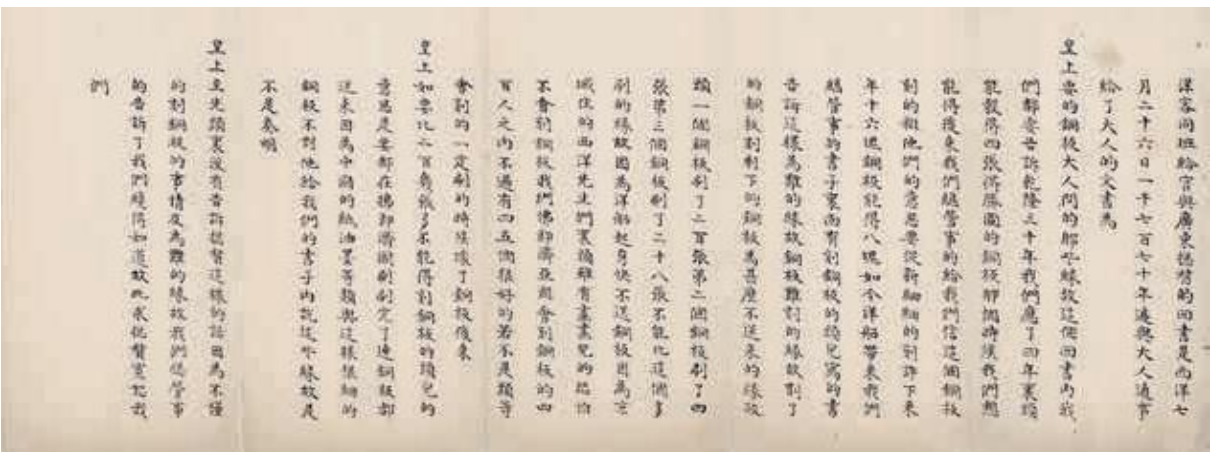 洋客同班給官與廣東總督的回書是西洋七
月二十六日一千七百七十年送與大人通事
給了大人的文書為
皇上要的銅板大人問的那些緣故這個回書內我
們都要告訴乾隆三十年我們應了四年裏頭
能彀得四張得勝圖的銅板那個時候我們想
能得後來我們總管事的給我們信這個銅板
刻的狠他們的意思要從新細細的刻許下來
年十六塊銅板能得八塊如今洋船帶來我們
總管事的書子裏面有刻銅板的總兒寫的書
告訴這樣為難的緣故銅板難刻的緣故刻了
的銅板刻剩下的銅板為甚麼不送來的緣故
頭一個銅板刷了二百張第二個銅板刷了四
張第三個銅板刷了二十八張不能比這個多
刷的緣故因為洋船起身快不送銅板因為京
城住的西洋先生們裏頭雖有畫畫兒的恐怕
不會刷銅板我們佛郎濟亞國會刷銅板的四
百人之內不過有四五個狠好的若不是頭等
會刷的一定刷的時候壞了銅板後來
皇上如要比二百張多不能得刻銅板的頭兒的
意思是要都在佛郎濟國刷刷完了連銅板都
送來因為中國的紙油墨等類與這樣狠細的
銅板不對他給我們的書子內說這個緣故是
不是奏明
皇上在先頭裏沒有告訴總督這樣的話因為不懂
的刻銅板的事情及為難的緣故我們總管事
的告訴了我們纔得知道故此求總督寬恕我
們